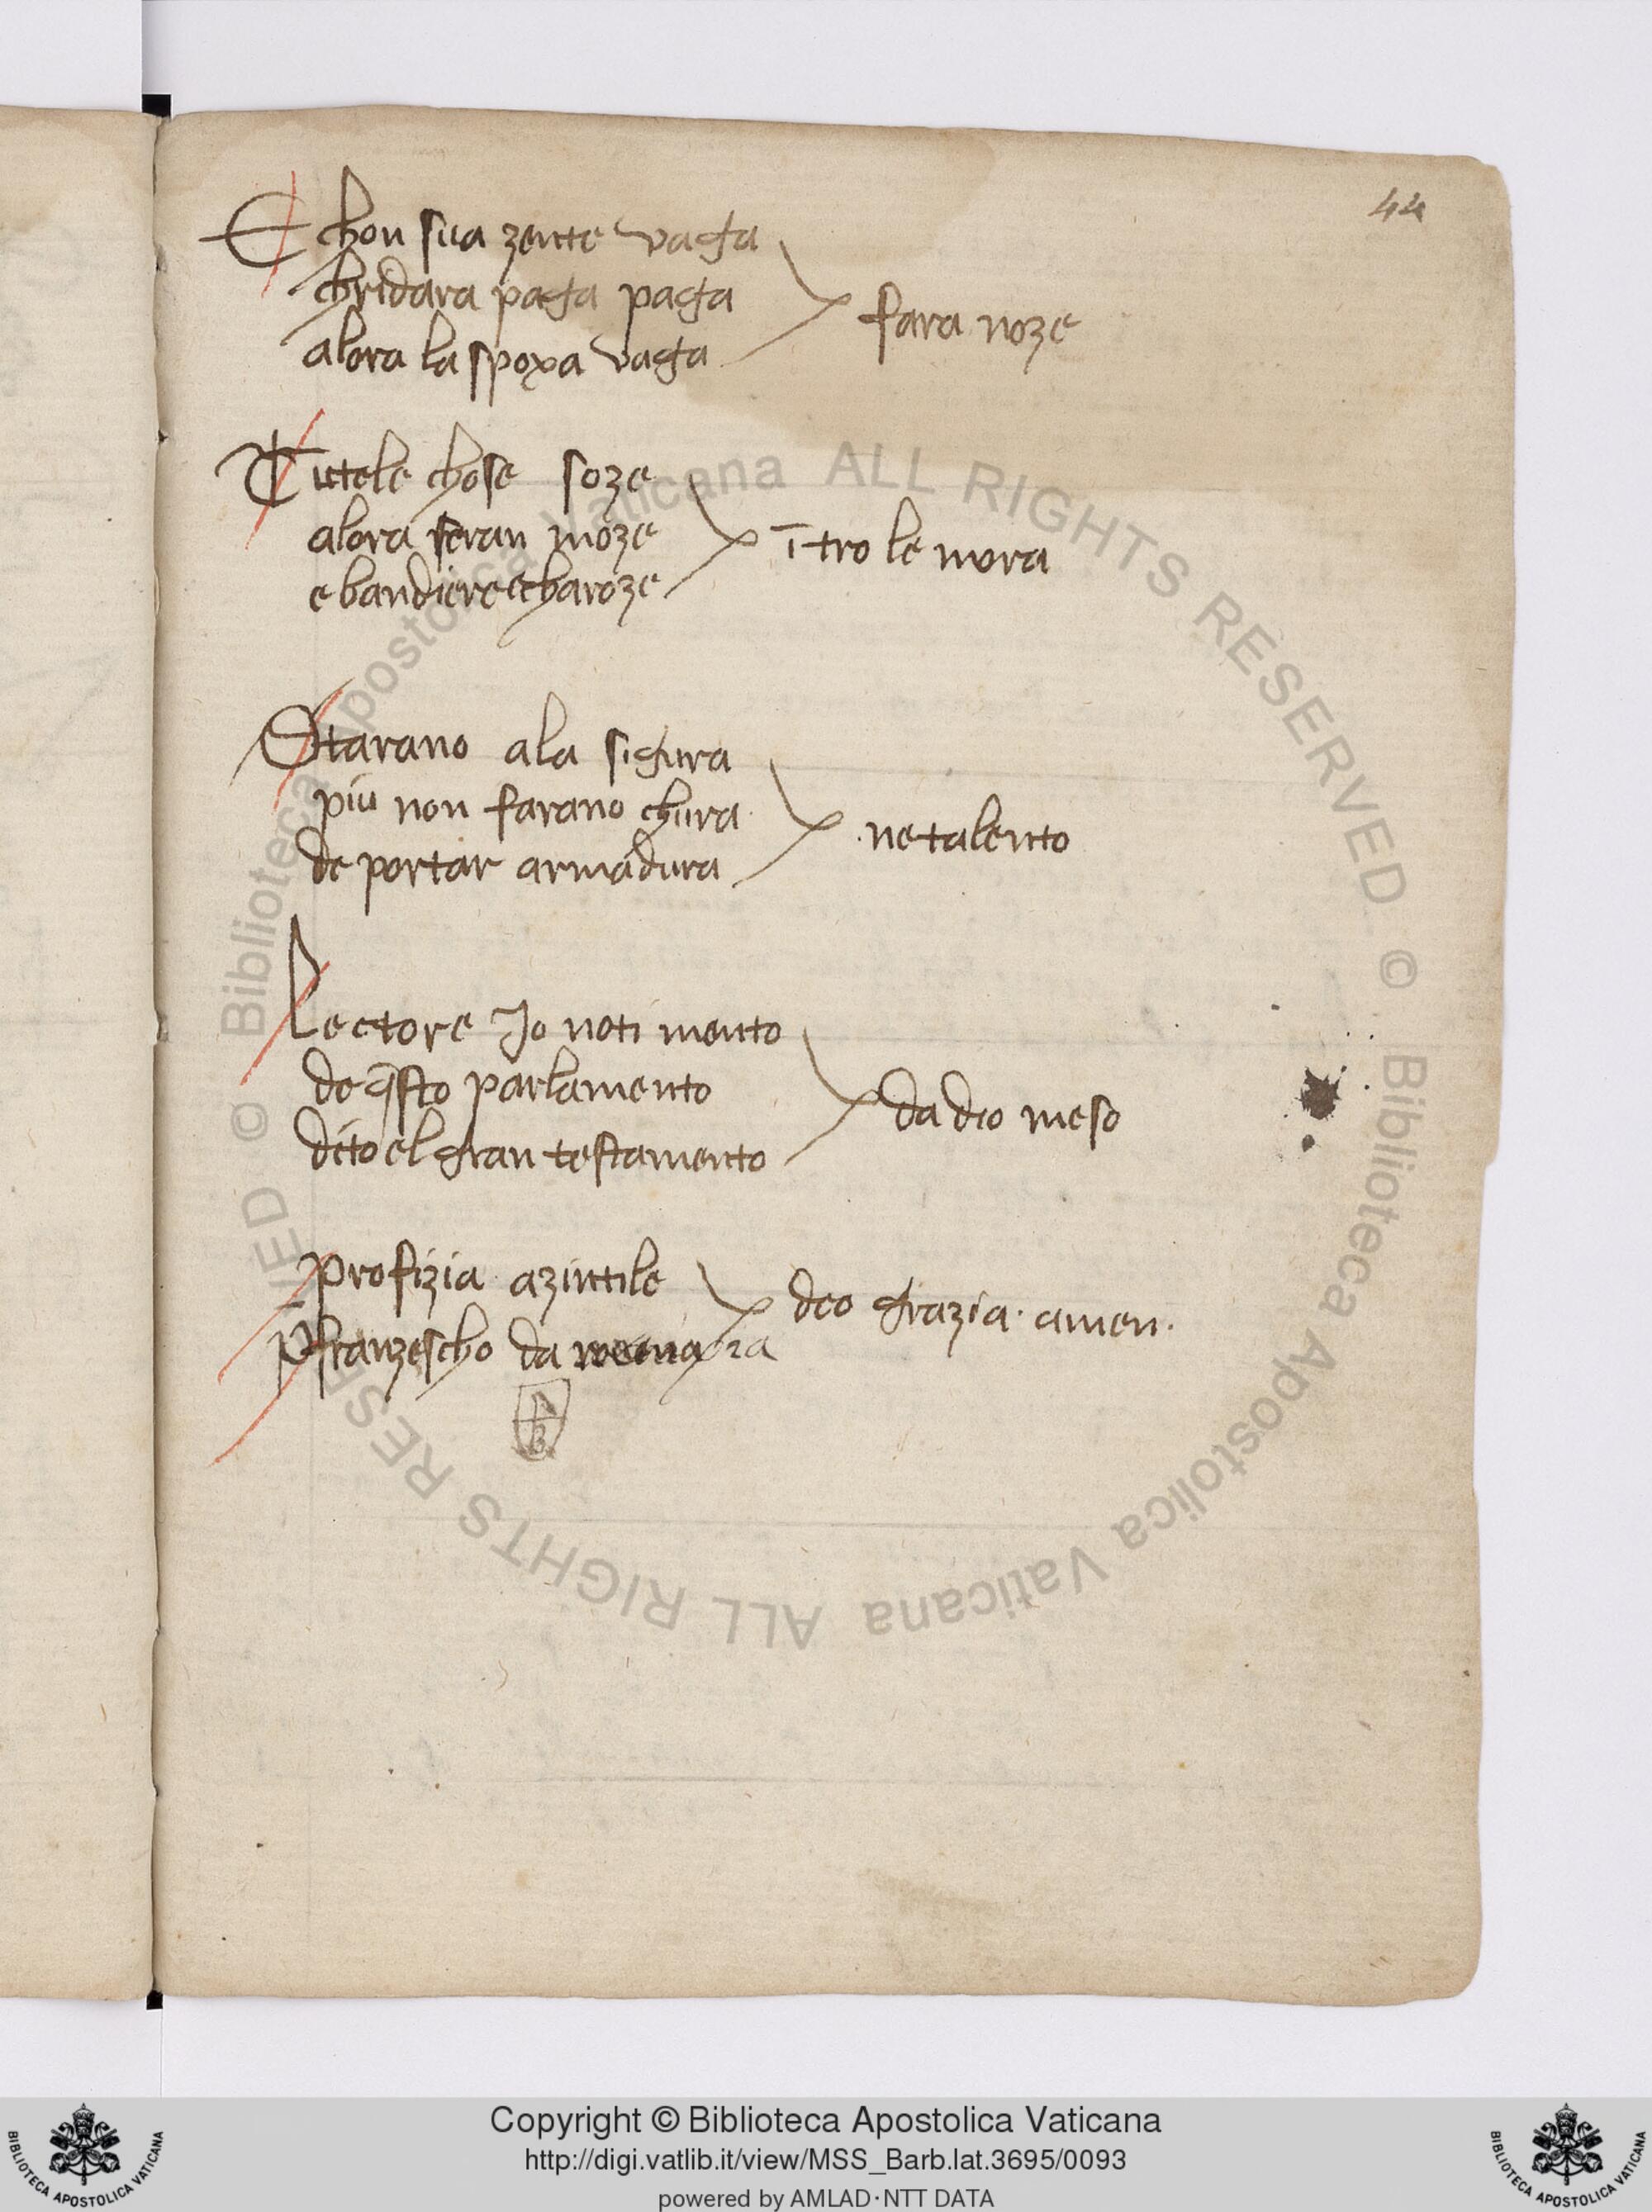 44
E chon sua zente vaga
chridara paga paga
alora la spoxa vaga
fara noze
Tutele chose soze
alora seran moze
e bandiere e charoze
ītro le mura
Starano ala sigura
piu non farano chura
de portar armadura
ne talento
Lectore Io noti mento
de q̄sto parlamento
dito el gran testamento
da dio meso
Profizia azintile
franzescho da
deo grazia · amen ·
© Biblioteca Apostolica Vaticana ALL RIGHTS RESERVED
© Biblioteca Apostolica Vaticana ALL RIGHTS RESERVED
Copyright © Biblioteca Apostolica Vaticana
http://digi.vatlib.it/view/MSS_Barb.lat.3695/0093
powered by AMLAD·NTT DATA
BIBLIOTECA APOSTOLICA VATICANA
BIBLIOTECA APOSTOLICA VATICANA